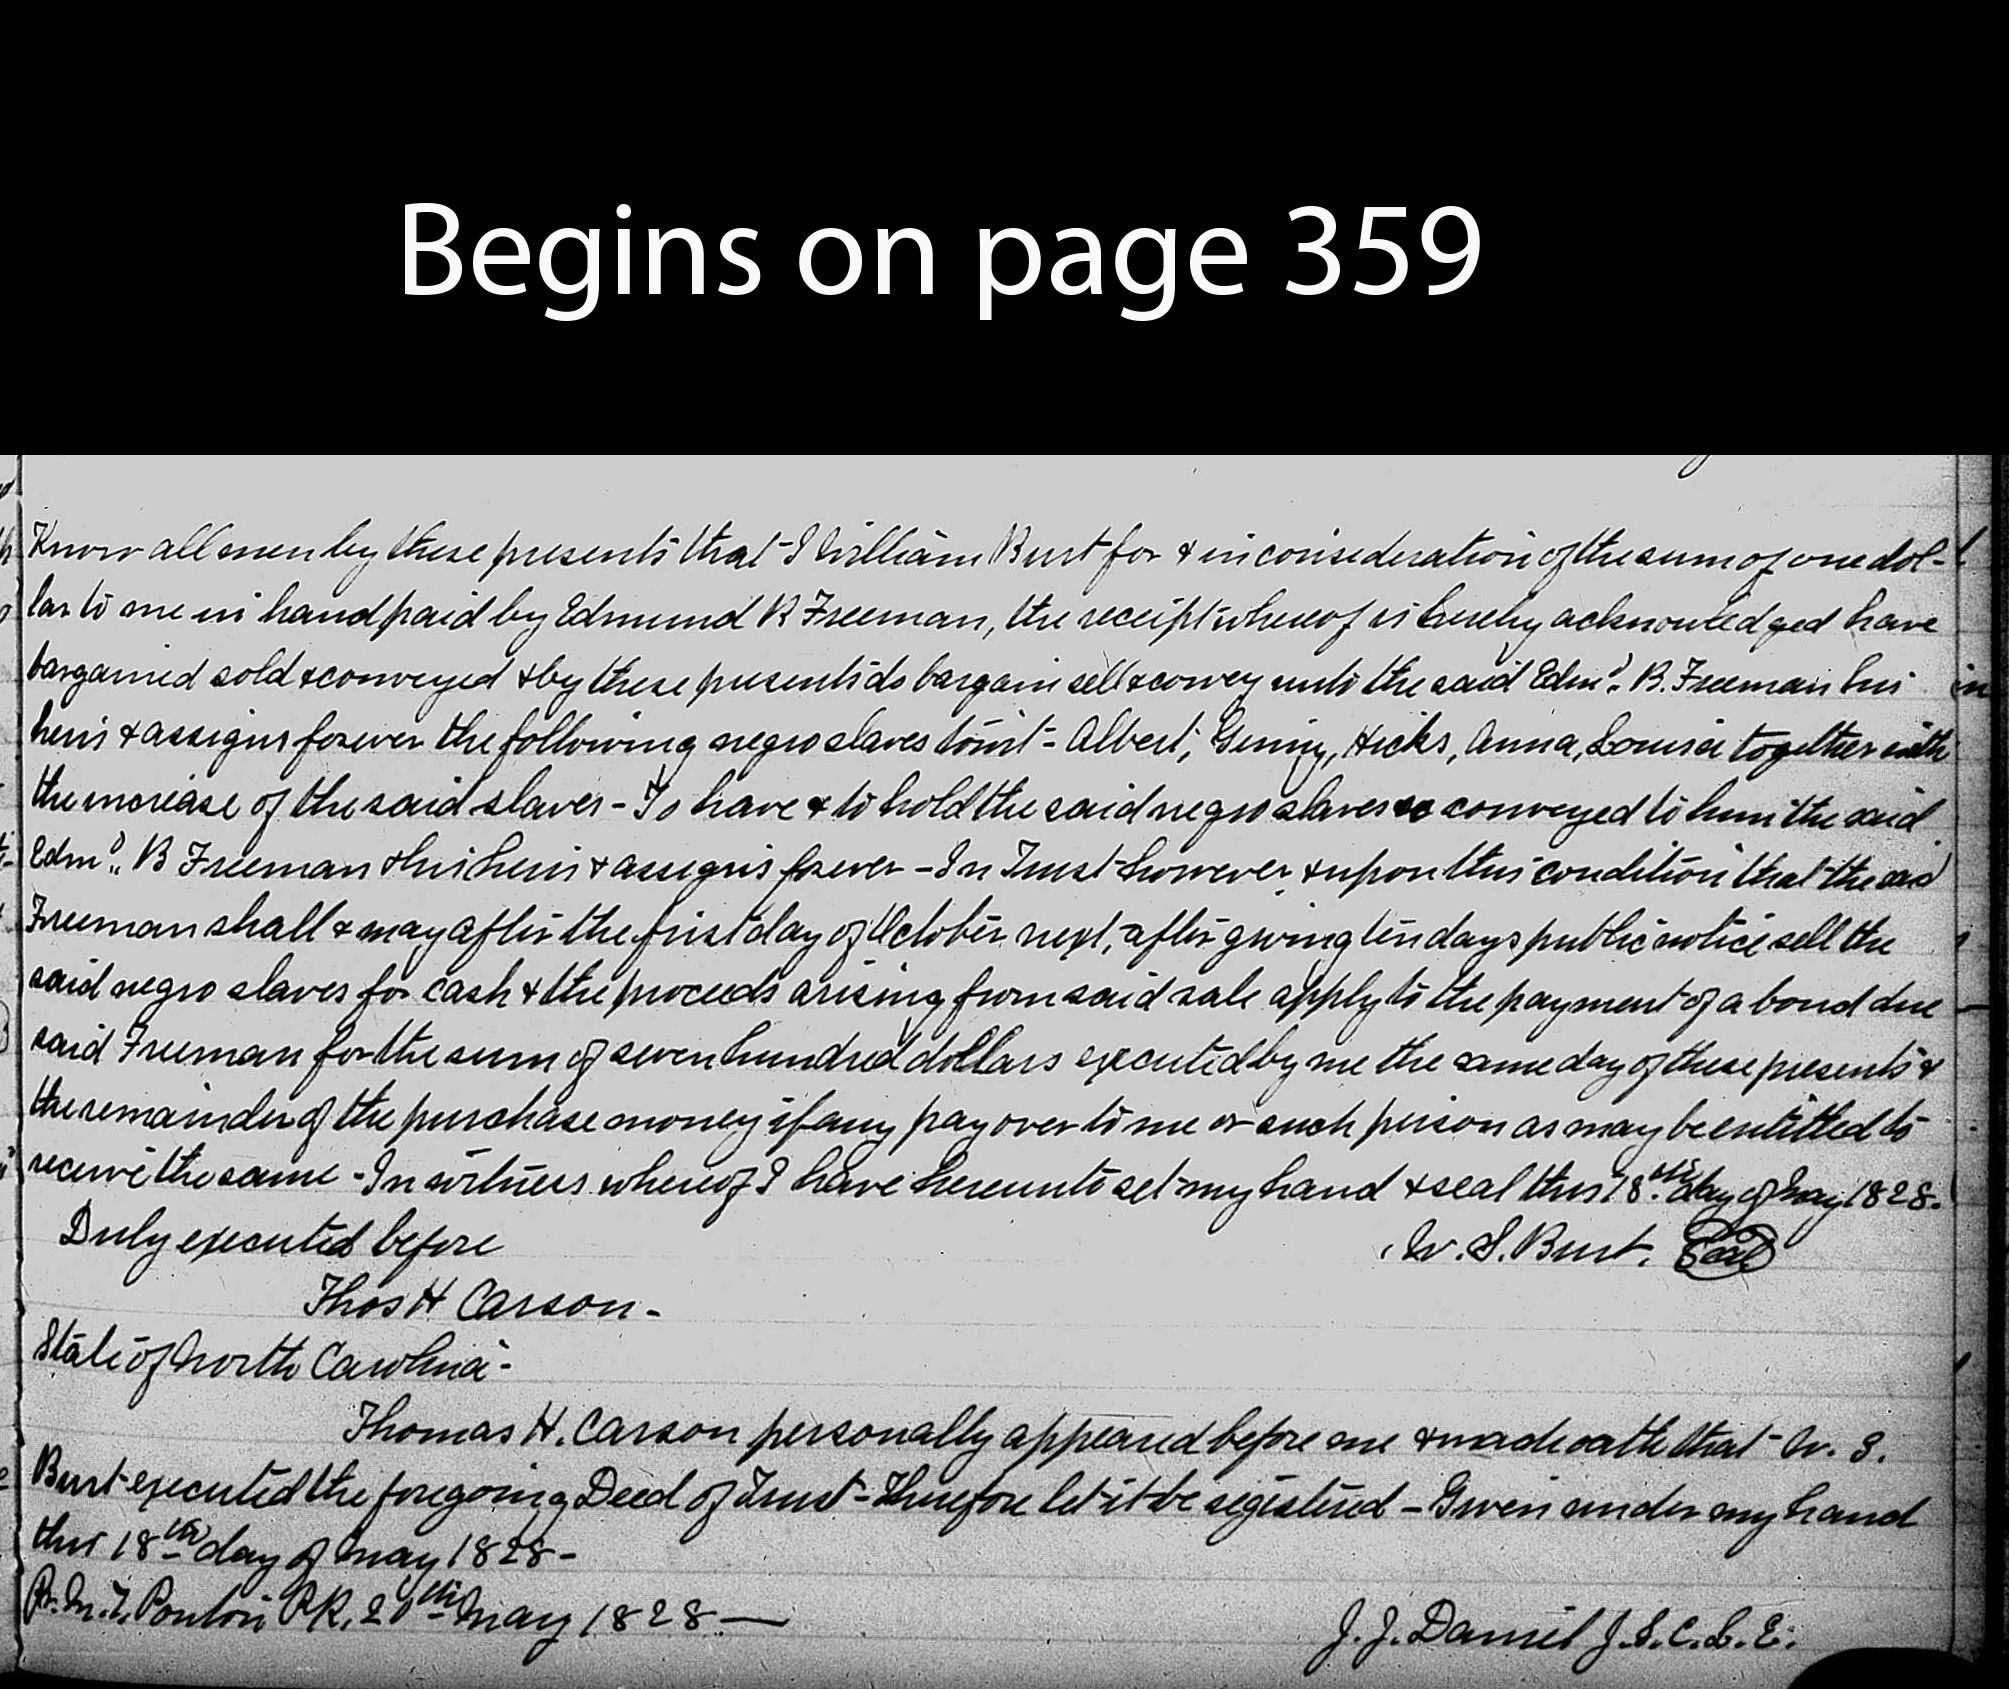 Begins on page 359
Know all men by these presents that I William Burt for & in consideration of the sum of one dol-
lar to me in hand paid by Edmund B Freeman, the receipt whereof is hereby acknowledged have
bargained sold & conveyed & by these presents do bargain sell & convey unto the said Edmd. B. Freeman his
heirs & assigns forever the following negro slaves towit - Albert, Ginny, Hicks, Anna, Louisa together with
the increase of the said slaves - To have & to hold the said negro slaves so conveyed to him the said
Edmd. B Freeman & his heirs & assigns forever - In Trust however & upon this condition that the said
Freeman shall & may after the first day of October next, after giving ten days public notice sell the
said negro slaves for cash & the proceeds arising from said sale apply to the payment of a bond due
said Freeman for the sum of seven hundred dollars executed by me the same day of these presents &
the remainder of the purchase money if any pay over to me or such person as may be entitled to
receive the same - In witness whereof I have hereunto set my hand & seal this 18th day of May 1828.
Duly executed before W. S. Burt. Seal
Thos H Carson -
State of North Carolina -
Thomas H. Carson personally appeared before me & made oath that W. S.
Burt executed the foregoing Deed of Trust - Therefore let it be registered - Given under my hand
this 18th day of May 1828 -
M. T. Ponton PR. May 1828 —
J. J. Daniel J. S. C. L. E.